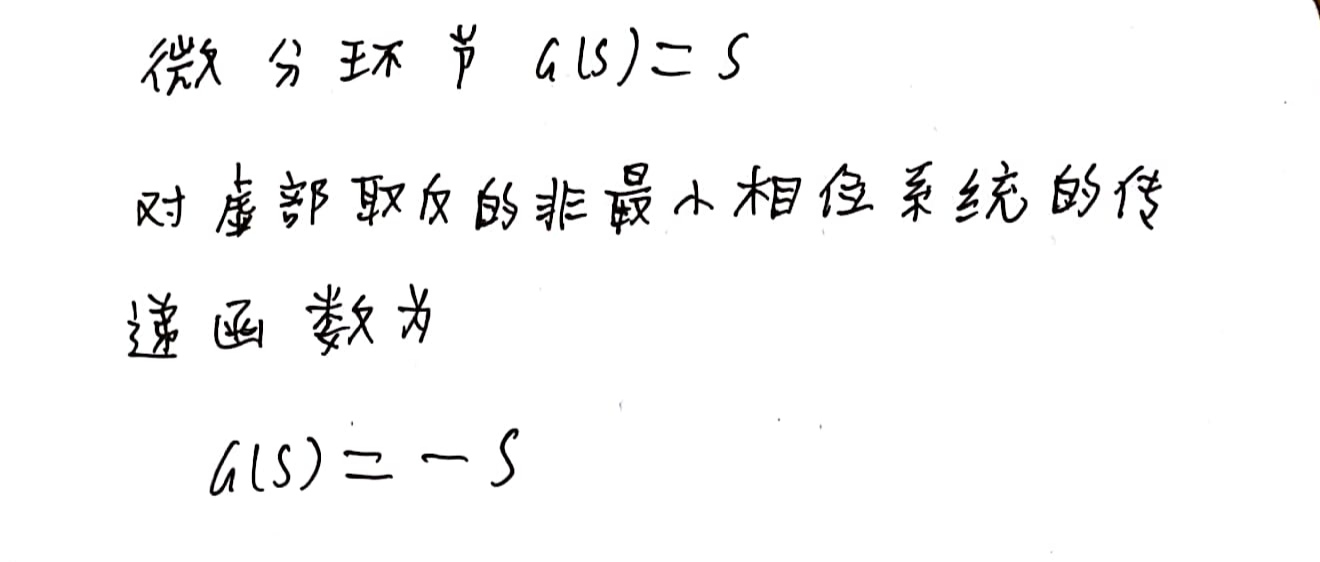 微分环节 G(S)=S
对虚部取反的非最小相位系统的传
递函数为
G(S)=-S